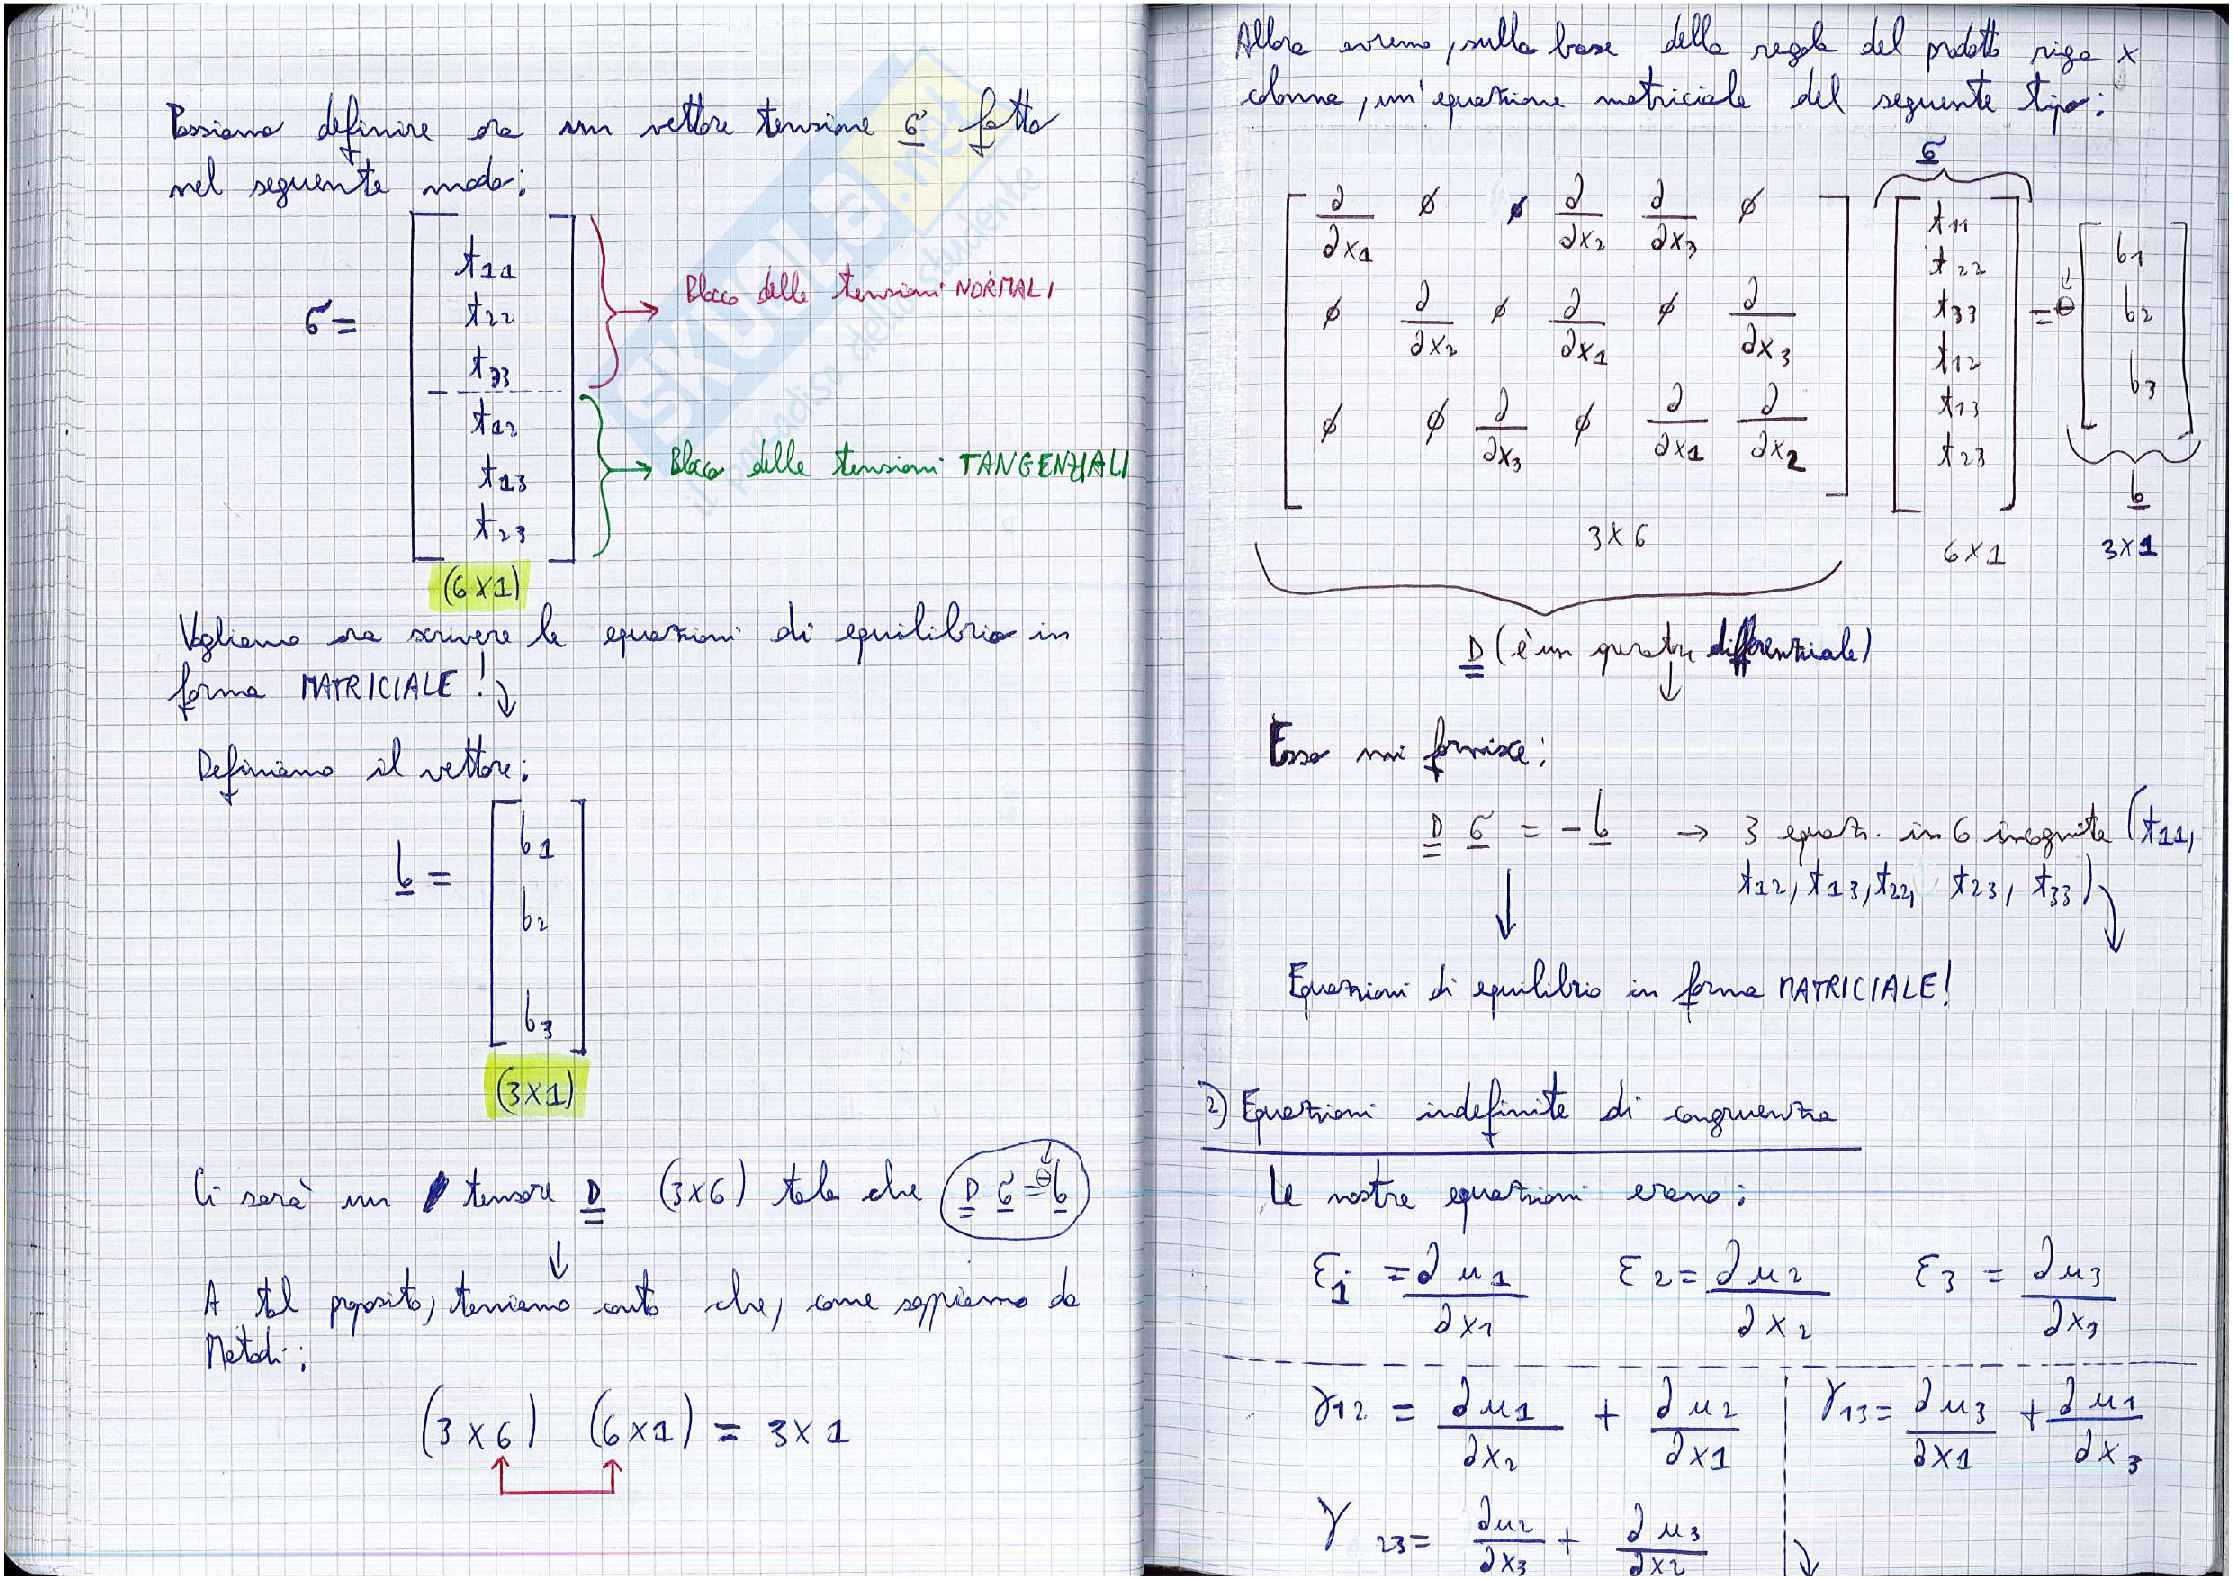 Possiamo definire ora un vettore tensione σ fatto
nel seguente modo:
σ = [ t11 t22 t33 t12 t13 t23 ]
Blocco delle tensioni NORMALI
Blocco delle tensioni TANGENZIALI
(6x1)
Vogliamo ora scrivere le equazioni di equilibrio in
forma MATRICIALE!
Definiamo il vettore:
b = [ b1 b2 b3 ]
(3x1)
Ci sarà un tensore D (3x6) tale che D σ = -b
A tal proposito, teniamo conto che, come sappiamo da
Metodi:
(3x6) (6x1) = 3x1
SKUOLA.net
il paradiso dello studente
Allora avremo, sulla base della regola del prodotto riga x
colonna, un'equazione matriciale del seguente tipo:
σ
∂/∂x1 ø ø ∂/∂x2 ∂/∂x3 ø
ø ∂/∂x2 ø ∂/∂x1 ø ∂/∂x3
ø ø ∂/∂x3 ø ∂/∂x1 ∂/∂x2
t11
t22
t33
t12
t13
t23
= -
b1
b2
b3
b
3x6 6x1 3x1
D (è un operatore differenziale)
Esso mi fornisce:
D σ = -b → 3 equaz. in 6 incognite (t11,
t12, t13, t22, t23, t33)
Equazioni di equilibrio in forma MATRICIALE!
2) Equazioni indefinite di congruenza
Le nostre equazioni erano:
ε1 = ∂u1/∂x1 ε2 = ∂u2/∂x2 ε3 = ∂u3/∂x3
γ12 = ∂u1/∂x2 + ∂u2/∂x1 γ13 = ∂u3/∂x1 + ∂u1/∂x3
γ23 = ∂u2/∂x3 + ∂u3/∂x2